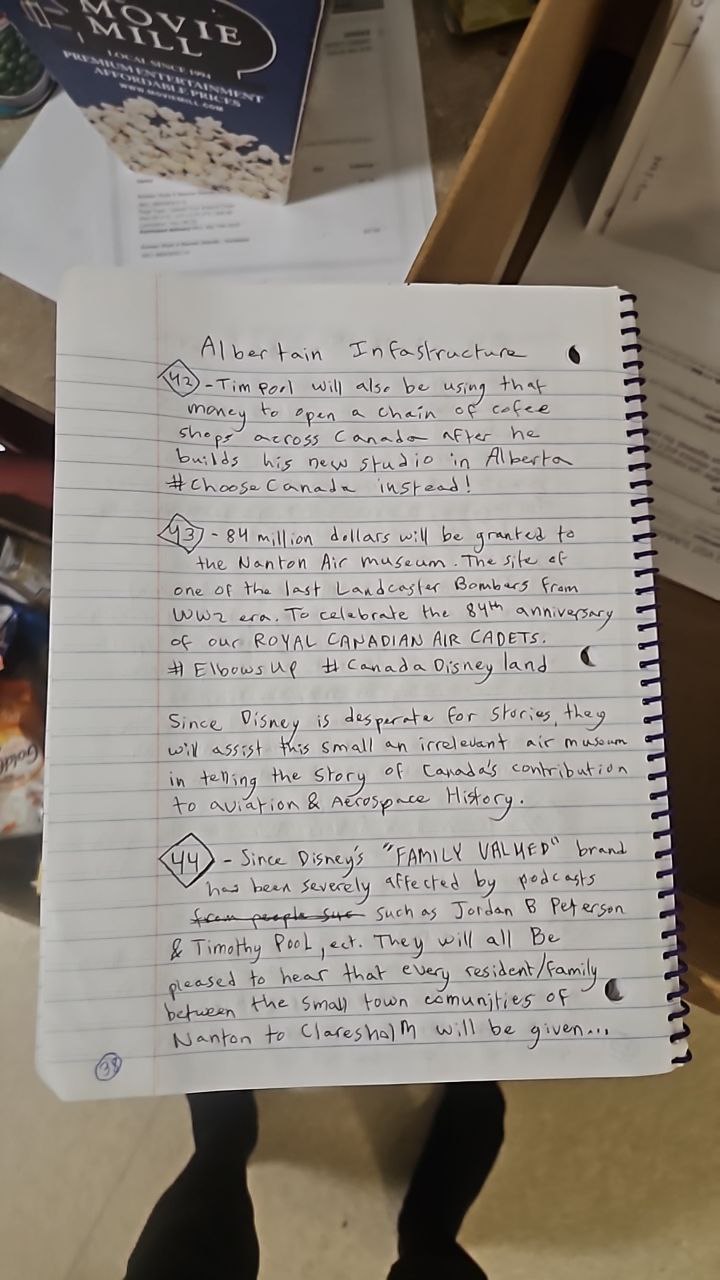 MOVIE
MILL
LOCAL SINCE 1994
PREMIUM ENTERTAINMENT
AFFORDABLE PRICES
WWW.MOVIEMILL.COM
Albertain Infastructure
42 - Tim Pool will also be using that
money to open a chain of cofee
shops across Canada after he
builds his new studio in Alberta
#ChooseCanada instead!
43 - 84 million dollars will be granted to
the Nanton Air museum. The site of
one of the last Landcaster Bombers from
WW2 era. To celebrate the 84th anniversary
of our ROYAL CANADIAN AIR CADETS.
#ElbowsUp #CanadaDisneyland
Since Disney is desperate for stories, they
will assist this small an irrelevant air museum
in telling the story of Canada's contribution
to aviation & Aerospace History.
44 - Since Disney's "FAMILY VALUED" brand
has been severely affected by podcasts
from people suc such as Jordan B Peterson
& Timothy Pool, ect. They will all Be
pleased to hear that every resident/family
between the small town comunities of
Nanton to Claresholm will be given...
38